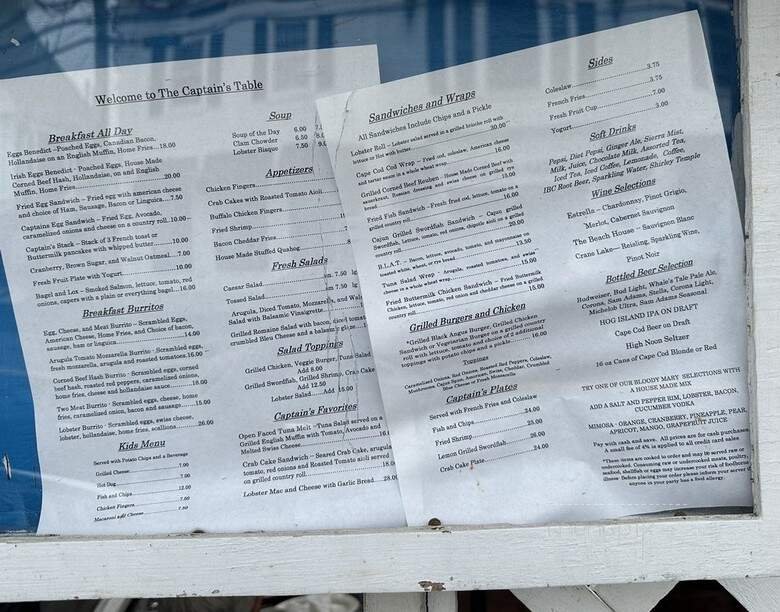 Welcome to The Captain's Table
Breakfast All Day
Eggs Benedict -Poached Eggs, Canadian Bacon,
Hollandaise on an English Muffin, Home Fries....18.00
Irish Eggs Benedict - Poached Eggs, House Made
Corned Beef Hash, Hollandaise, on and English
Muffin, Home Fries................20.00
Fried Egg Sandwich – Fried egg with american cheese
and choice of Ham, Sausage, Bacon or Linguica....7.50
Captains Egg Sandwich – Fried Egg, Avocado,
caramelized onions and cheese on a country roll..10.00
Captain's Stack – Stack of 3 French toast or
Buttermilk pancakes with whipped butter.....10.00
Cranberry, Brown Sugar, and Walnut Oatmeal....7.00
Fresh Fruit Plate with Yogurt................10.00
Bagel and Lox – Smoked Salmon, lettuce, tomato, red
onions, capers with a plain or everything bagel...16.00
Breakfast Burritos
Egg, Cheese, and Meat Burrito – Scrambled Eggs,
American Cheese, Home Fries, and Choice of bacon,
sausage, ham or linguica................14.00
Arugula Tomato Mozzarella Burrito - Scrambled eggs,
fresh mozzarella, arugula and roasted tomatoes.16.00
Corned Beef Hash Burrito – Scrambled eggs, corned
beef hash, roasted red peppers, caramelized onion,
home fries, cheese and hollandaise sauce........18.00
Two Meat Burrito – Scrambled eggs, cheese, home
fries, caramelized onion, bacon and sausage......15.00
Lobster Burrito - Scrambled eggs, swiss cheese,
lobster, hollandaise, home fries, scallions.......26.00
Kids Menu
Served with Potato Chips and a Beverage
Grilled Cheese................7.00
Hot Dog
Fish and Chips................12.00
Chicken Fingers................7.00
Macaroni and Cheese................7.50
Soup
Soup of the Day 6.00
Clam Chowder 6.50
Lobster Bisque 7.50
Appetizers
Chicken Fingers
Crab Cakes with Roasted Tomato Aioli
Buffalo Chicken Fingers
Fried Shrimp
Bacon Cheddar Fries
House Made Stuffed Quahog
Fresh Salads
Caesar Salad................sm. 7.50 lg
Tossed Salad................sm. 7.50 lg
Arugula, Diced Tomato, Mozzarella, and
Salad with Balsamic Vinaigrette
Grilled Romaine Salad with bacon, diced tomato
crumbled Bleu Cheese and a balsamic
Salad Toppings
Grilled Chicken, Veggie Burger, Tuna Salad
Add 8.00
Grilled Swordfish, Grilled Shrimp, Crab Cake
Add 12.50
Lobster Salad....Add 15.00
Captain's Favorites
Open Faced Tuna Melt -Tuna Salad served on a
Grilled English Muffin with Tomato, Avocado and
Melted Swiss Cheese................16.0
Crab Cake Sandwich – Seared Crab Cake, arugula
tomato, red onions and Roasted Tomato aioli served
on grilled country roll................18.0
Lobster Mac and Cheese with Garlic Bread....28.0
Sandwiches and Wraps
All Sandwiches Include Chips and a Pickle
Lobster Roll – Lobster salad served in a grilled brioche roll with
lettuce or Hot with butter................30.00
Cape Cod Cod Wrap – Fried cod, coleslaw, American cheese
and tartar sauce in a whole wheat wrap................16.00
Grilled Corned Beef Reuben – House Made Corned Beef with
sauerkraut, Russian dressing and swiss cheese on grilled rye
bread................15.00
Fried Fish Sandwich – Fresh fried cod, lettuce, tomato on a
grilled country roll................16.00
Cajun Grilled Swordfish Sandwich – Cajun grilled
Swordfish, lettuce, tomato, red onions, chipotle aioli on a grilled
country roll................20.00
B.L.A.T. – Bacon, lettuce, avocado, tomato, and mayonnaise on
toasted white, wheat, or rye bread................13.50
Tuna Salad Wrap – Arugula, roasted tomatoes, and swiss
cheese in a whole wheat wrap................15.00
Fried Buttermilk Chicken Sandwich – Fried Buttermilk
Chicken, lettuce, tomato, red onion and cheddar cheese on a grilled
country roll................15.00
Grilled Burgers and Chicken
*Grilled Black Angus Burger, Grilled Chicken
Sandwich or Vegetarian Burger on a grilled country
roll with lettuce, tomato and choice of 2 additional
toppings with potato chips and a pickle........16.00
Toppings
Caramelized Onions, Red Onions, Roasted Red Peppers, Coleslaw,
Mushrooms, Cajun Spice, American, Swiss, Cheddar, Crumbled
Bleu Cheese or Fresh Mozzarella
Captain's Plates
Served with French Fries and Coleslaw
Fish and Chips................24.00
Fried Shrimp................25.00
Lemon Grilled Swordfish................26.00
Crab Cake Plate................24.00
Sides
Coleslaw................3.75
French Fries................3.75
Fresh Fruit Cup................7.00
Yogurt................3.00
Soft Drinks
Pepsi, Diet Pepsi, Ginger Ale, Sierra Mist,
Milk, Juice, Chocolate Milk, Assorted Tea,
Iced Tea, Iced Coffee, Lemonade, Coffee,
IBC Root Beer, Sparkling Water, Shirley Temple
Wine Selections
Estrella – Chardonnay, Pinot Grigio,
Merlot, Cabernet Sauvignon
The Beach House – Sauvignon Blanc
Crane Lake— Reisling, Sparkling Wine,
Pinot Noir
Bottled Beer Selection
Budweiser, Bud Light, Whale's Tale Pale Ale,
Corona, Sam Adams, Stella, Corona Light,
Michelob Ultra, Sam Adams Seasonal
HOG ISLAND IPA ON DRAFT
Cape Cod Beer on Draft
High Noon Seltzer
16 oz Cans of Cape Cod Blonde or Red
TRY ONE OF OUR BLOODY MARY SELECTIONS WITH
A HOUSE MADE MIX
ADD A SALT AND PEPPER RIM, LOBSTER, BACON,
CUCUMBER VODKA
MIMOSA - ORANGE, CRANBERRY, PINEAPPLE, PEAR,
APRICOT, MANGO, GRAPEFRUIT JUICE
Pay with cash and save. All prices are for cash purchases
A small fee of 4% is applied to all credit card sales
*These items are cooked to order and may be served raw or
undercooked. Consuming raw or undercooked meats, poultry,
seafood, shellfish or eggs may increase your risk of foodborne
illness. Before placing your order please inform your server if
anyone in your party has a food allergy.